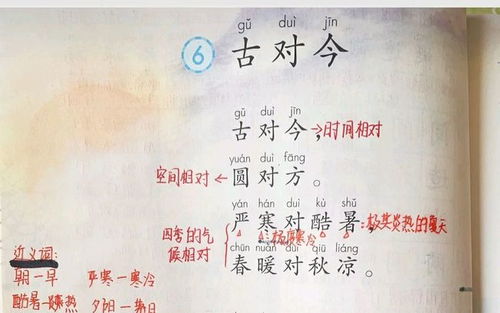 gǔ duì jīn
6 古对今
gǔ duì jīn
古对今，→时间相对
yuán duì fāng
空间相对←圆对方。
yán hán duì kù shǔ
严寒对酷暑，:极其炎热的夏天
四季的气
候相对
极度寒冷
chūn nuǎn duì qiū liáng
春暖对秋凉。
近义词:
朝一早 严寒一寒冷
酷暑一炎热 夕阳一